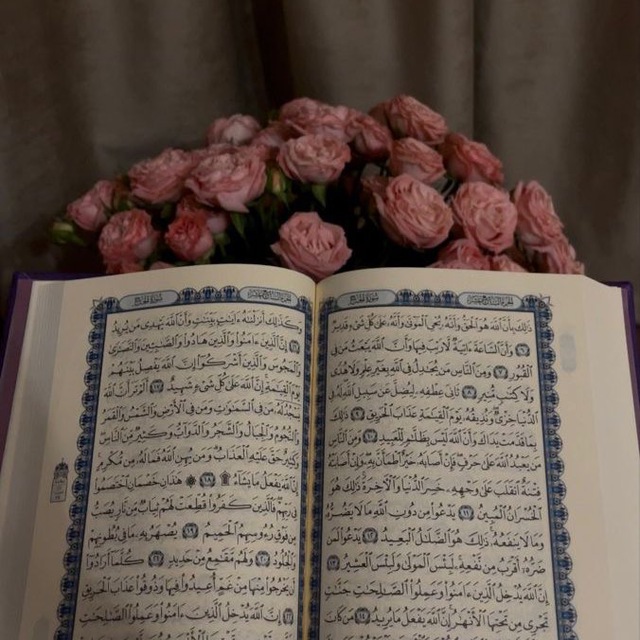 الجزء السابع عشر سورة الحج
ذَٰلِكَ بِأَنَّ ٱللَّهَ هُوَ ٱلْحَقُّ وَأَنَّهُۥ يُحْىِ ٱلْمَوْتَىٰ وَأَنَّهُۥ عَلَىٰ كُلِّ شَىْءٍ قَدِيرٌ
٦ وَأَنَّ ٱلسَّاعَةَ ءَاتِيَةٌ لَّا رَيْبَ فِيهَا وَأَنَّ ٱللَّهَ يَبْعَثُ مَن فِى
ٱلْقُبُورِ ٧ وَمِنَ ٱلنَّاسِ مَن يُجَٰدِلُ فِى ٱللَّهِ بِغَيْرِ عِلْمٍ وَلَا هُدًى
وَلَا كِتَٰبٍ مُّنِيرٍ ٨ ثَانِىَ عِطْفِهِۦ لِيُضِلَّ عَن سَبِيلِ ٱللَّهِ لَهُۥ فِى
ٱلدُّنْيَا خِزْىٌ وَنُذِيقُهُۥ يَوْمَ ٱلْقِيَٰمَةِ عَذَابَ ٱلْحَرِيقِ ٩ ذَٰلِكَ
بِمَا قَدَّمَتْ يَدَاكَ وَأَنَّ ٱللَّهَ لَيْسَ بِظَلَّٰمٍ لِّلْعَبِيدِ ١٠ وَمِنَ ٱلنَّاسِ
مَن يَعْبُدُ ٱللَّهَ عَلَىٰ حَرْفٍ فَإِنْ أَصَابَهُۥ خَيْرٌ ٱطْمَأَنَّ بِهِۦ وَإِنْ أَصَابَتْهُ
فِتْنَةٌ ٱنقَلَبَ عَلَىٰ وَجْهِهِۦ خَسِرَ ٱلدُّنْيَا وَٱلْءَاخِرَةَ ذَٰلِكَ هُوَ
ٱلْخُسْرَانُ ٱلْمُبِينُ ١١ يَدْعُوا۟ مِن دُونِ ٱللَّهِ مَا لَا يَضُرُّهُۥ
وَمَا لَا يَنفَعُهُۥ ذَٰلِكَ هُوَ ٱلضَّلَٰلُ ٱلْبَعِيدُ ١٢ يَدْعُوا۟ لَمَن
ضَرُّهُۥٓ أَقْرَبُ مِن نَّفْعِهِۦ لَبِئْسَ ٱلْمَوْلَىٰ وَلَبِئْسَ ٱلْعَشِيرُ ١٣
إِنَّ ٱللَّهَ يُدْخِلُ ٱلَّذِينَ ءَامَنُوا۟ وَعَمِلُوا۟ ٱلصَّٰلِحَٰتِ جَنَّٰتٍ
تَجْرِى مِن تَحْتِهَا ٱلْأَنْهَٰرُ إِنَّ ٱللَّهَ يَفْعَلُ مَا يُرِيدُ ١٤ مَن كَانَ
الجزء السابع عشر سورة الحج
وَكَذَٰلِكَ أَنزَلْنَٰهُ ءَايَٰتٍۭ بَيِّنَٰتٍ وَأَنَّ ٱللَّهَ يَهْدِى مَن يُرِيدُ
١٦ إِنَّ ٱلَّذِينَ ءَامَنُوا۟ وَٱلَّذِينَ هَادُوا۟ وَٱلصَّٰبِـِٔينَ وَٱلنَّصَٰرَىٰ
وَٱلْمَجُوسَ وَٱلَّذِينَ أَشْرَكُوٓا۟ إِنَّ ٱللَّهَ يَفْصِلُ بَيْنَهُمْ
يَوْمَ ٱلْقِيَٰمَةِ إِنَّ ٱللَّهَ عَلَىٰ كُلِّ شَىْءٍ شَهِيدٌ ١٧ أَلَمْ تَرَ أَنَّ ٱللَّهَ
يَسْجُدُ لَهُۥ مَن فِى ٱلسَّمَٰوَٰتِ وَمَن فِى ٱلْأَرْضِ وَٱلشَّمْسُ وَٱلْقَمَرُ
وَٱلنُّجُومُ وَٱلْجِبَالُ وَٱلشَّجَرُ وَٱلدَّوَآبُّ وَكَثِيرٌ مِّنَ ٱلنَّاسِ
وَكَثِيرٌ حَقَّ عَلَيْهِ ٱلْعَذَابُ وَمَن يُهِنِ ٱللَّهُ فَمَا لَهُۥ مِن مُّكْرِمٍ
إِنَّ ٱللَّهَ يَفْعَلُ مَا يَشَآءُ ۩ ١٨ ۞ هَٰذَانِ خَصْمَانِ ٱخْتَصَمُوا۟
فِى رَبِّهِمْ فَٱلَّذِينَ كَفَرُوا۟ قُطِّعَتْ لَهُمْ ثِيَابٌ مِّن نَّارٍ يُصَبُّ
مِن فَوْقِ رُءُوسِهِمُ ٱلْحَمِيمُ ١٩ يُصْهَرُ بِهِۦ مَا فِى بُطُونِهِمْ
وَٱلْجُلُودُ ٢٠ وَلَهُم مَّقَٰمِعُ مِنْ حَدِيدٍ ٢١ كُلَّمَآ أَرَادُوٓا۟
أَن يَخْرُجُوا۟ مِنْهَا مِنْ غَمٍّ أُعِيدُوا۟ فِيهَا وَذُوقُوا۟ عَذَابَ ٱلْحَرِيقِ
٢٢ إِنَّ ٱللَّهَ يُدْخِلُ ٱلَّذِينَ ءَامَنُوا۟ وَعَمِلُوا۟ ٱلصَّٰلِحَٰتِ